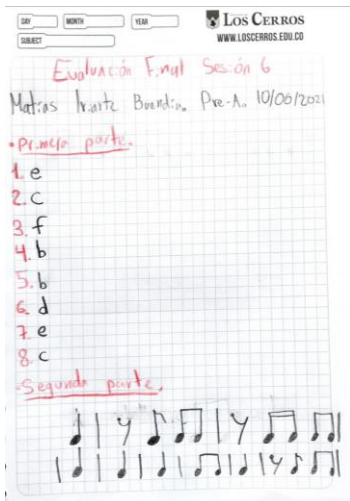 DAY MONTH YEAR LOS CERROS
SUBJECT WWW.LOSCERROS.EDU.CO
Evaluación Final Sesión 6
Matias Iriarte Buendia. Pre-A. 10/06/2021
• Primera parte.
1. e
2. c
3. f
4. b
5. b
6. d
7. e
8. c
• Segunda parte.